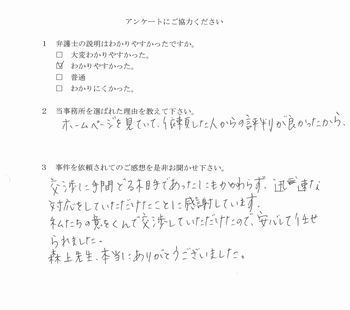 アンケートにご協力ください
1 弁護士の説明はわかりやすかったですか。
□ 大変わかりやすかった。
☑ わかりやすかった。
□ 普通
□ わかりにくかった。
2 当事務所を選ばれた理由を教えて下さい。
ホームページを見ていて、依頼した人からの評判が良かったから。
3 事件を依頼されてのご感想を是非お聞かせ下さい。
交渉に手間どる相手であったにもかかわらず、迅速な
対応をしていただけたことに感謝しています。
私たちの意をくんで交渉していただけたので、安心して任せ
られました。
森上先生、本当にありがとうございました。